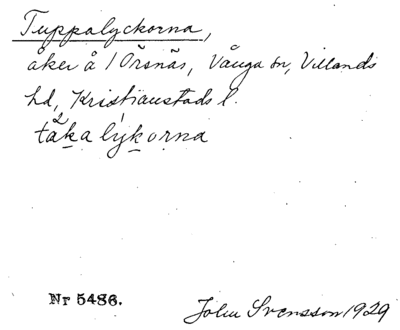 Tuppalyckorna,
åker å 1 Örsnäs, Vånga sn, Villands
hd, Kristianstads l.
tåkalykorna
Nr 5486.
John Svensson 1929